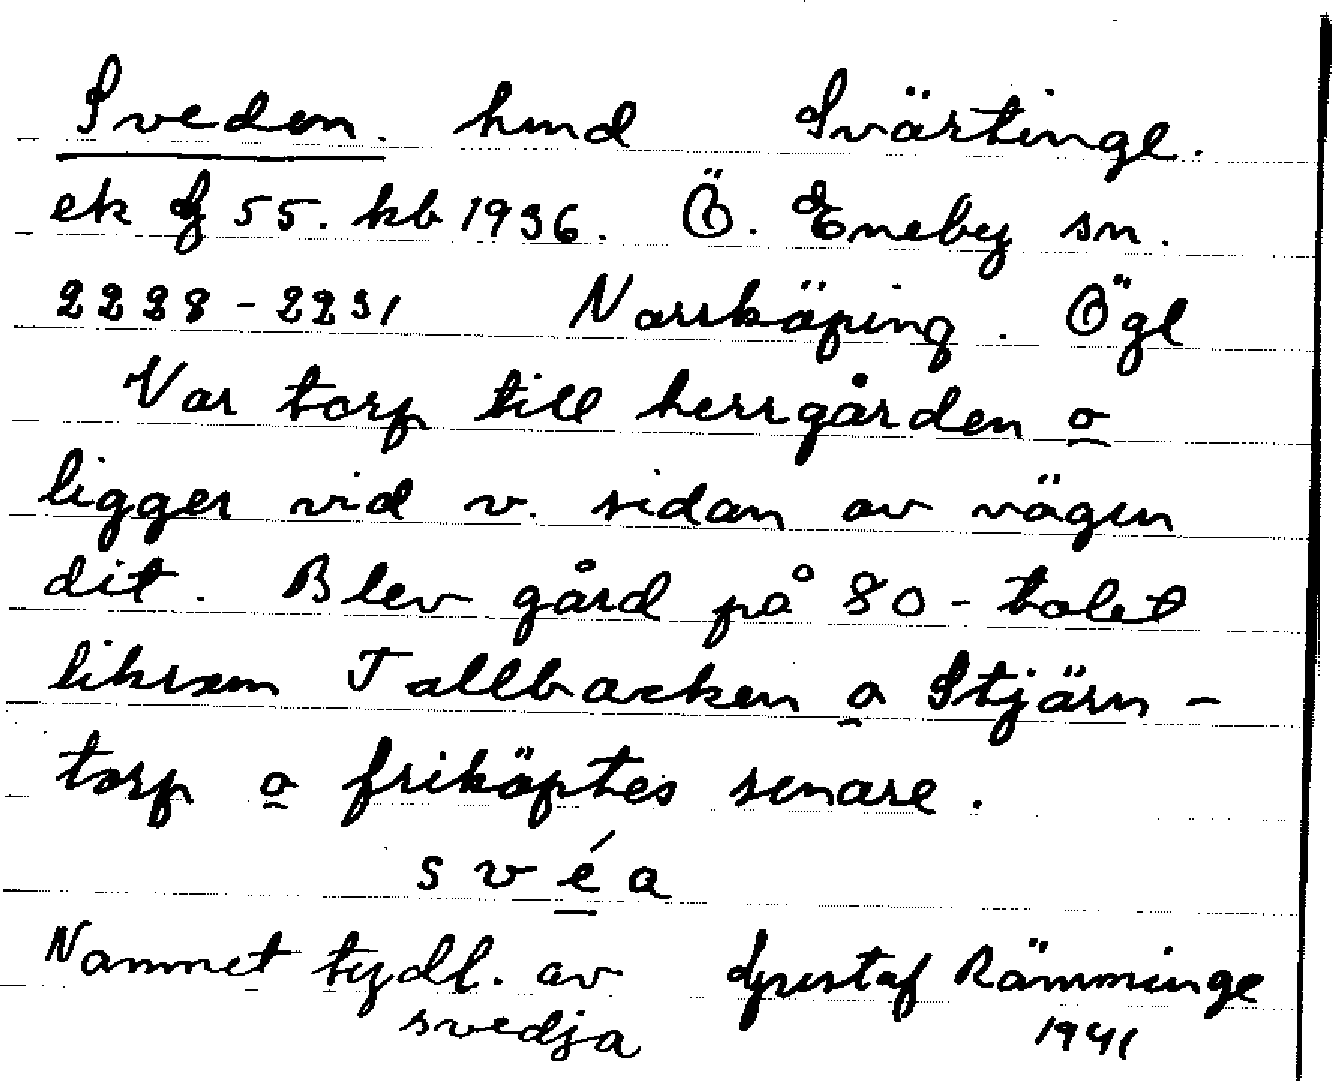 Sveden. hmd Svärtinge.
ek bf 55. kb 1936. Ö. Eneby sn.
2228-2231 Norrköping. Ögl
Var torp till herrgården o
ligger vid v. sidan av vägen
dit. Blev gård på 80-talet
liksom Tallbacken o Stjärn-
torp o friköptes senare.
svéa
Namnet tydl. av Gustaf Rämminge
svedja 1941